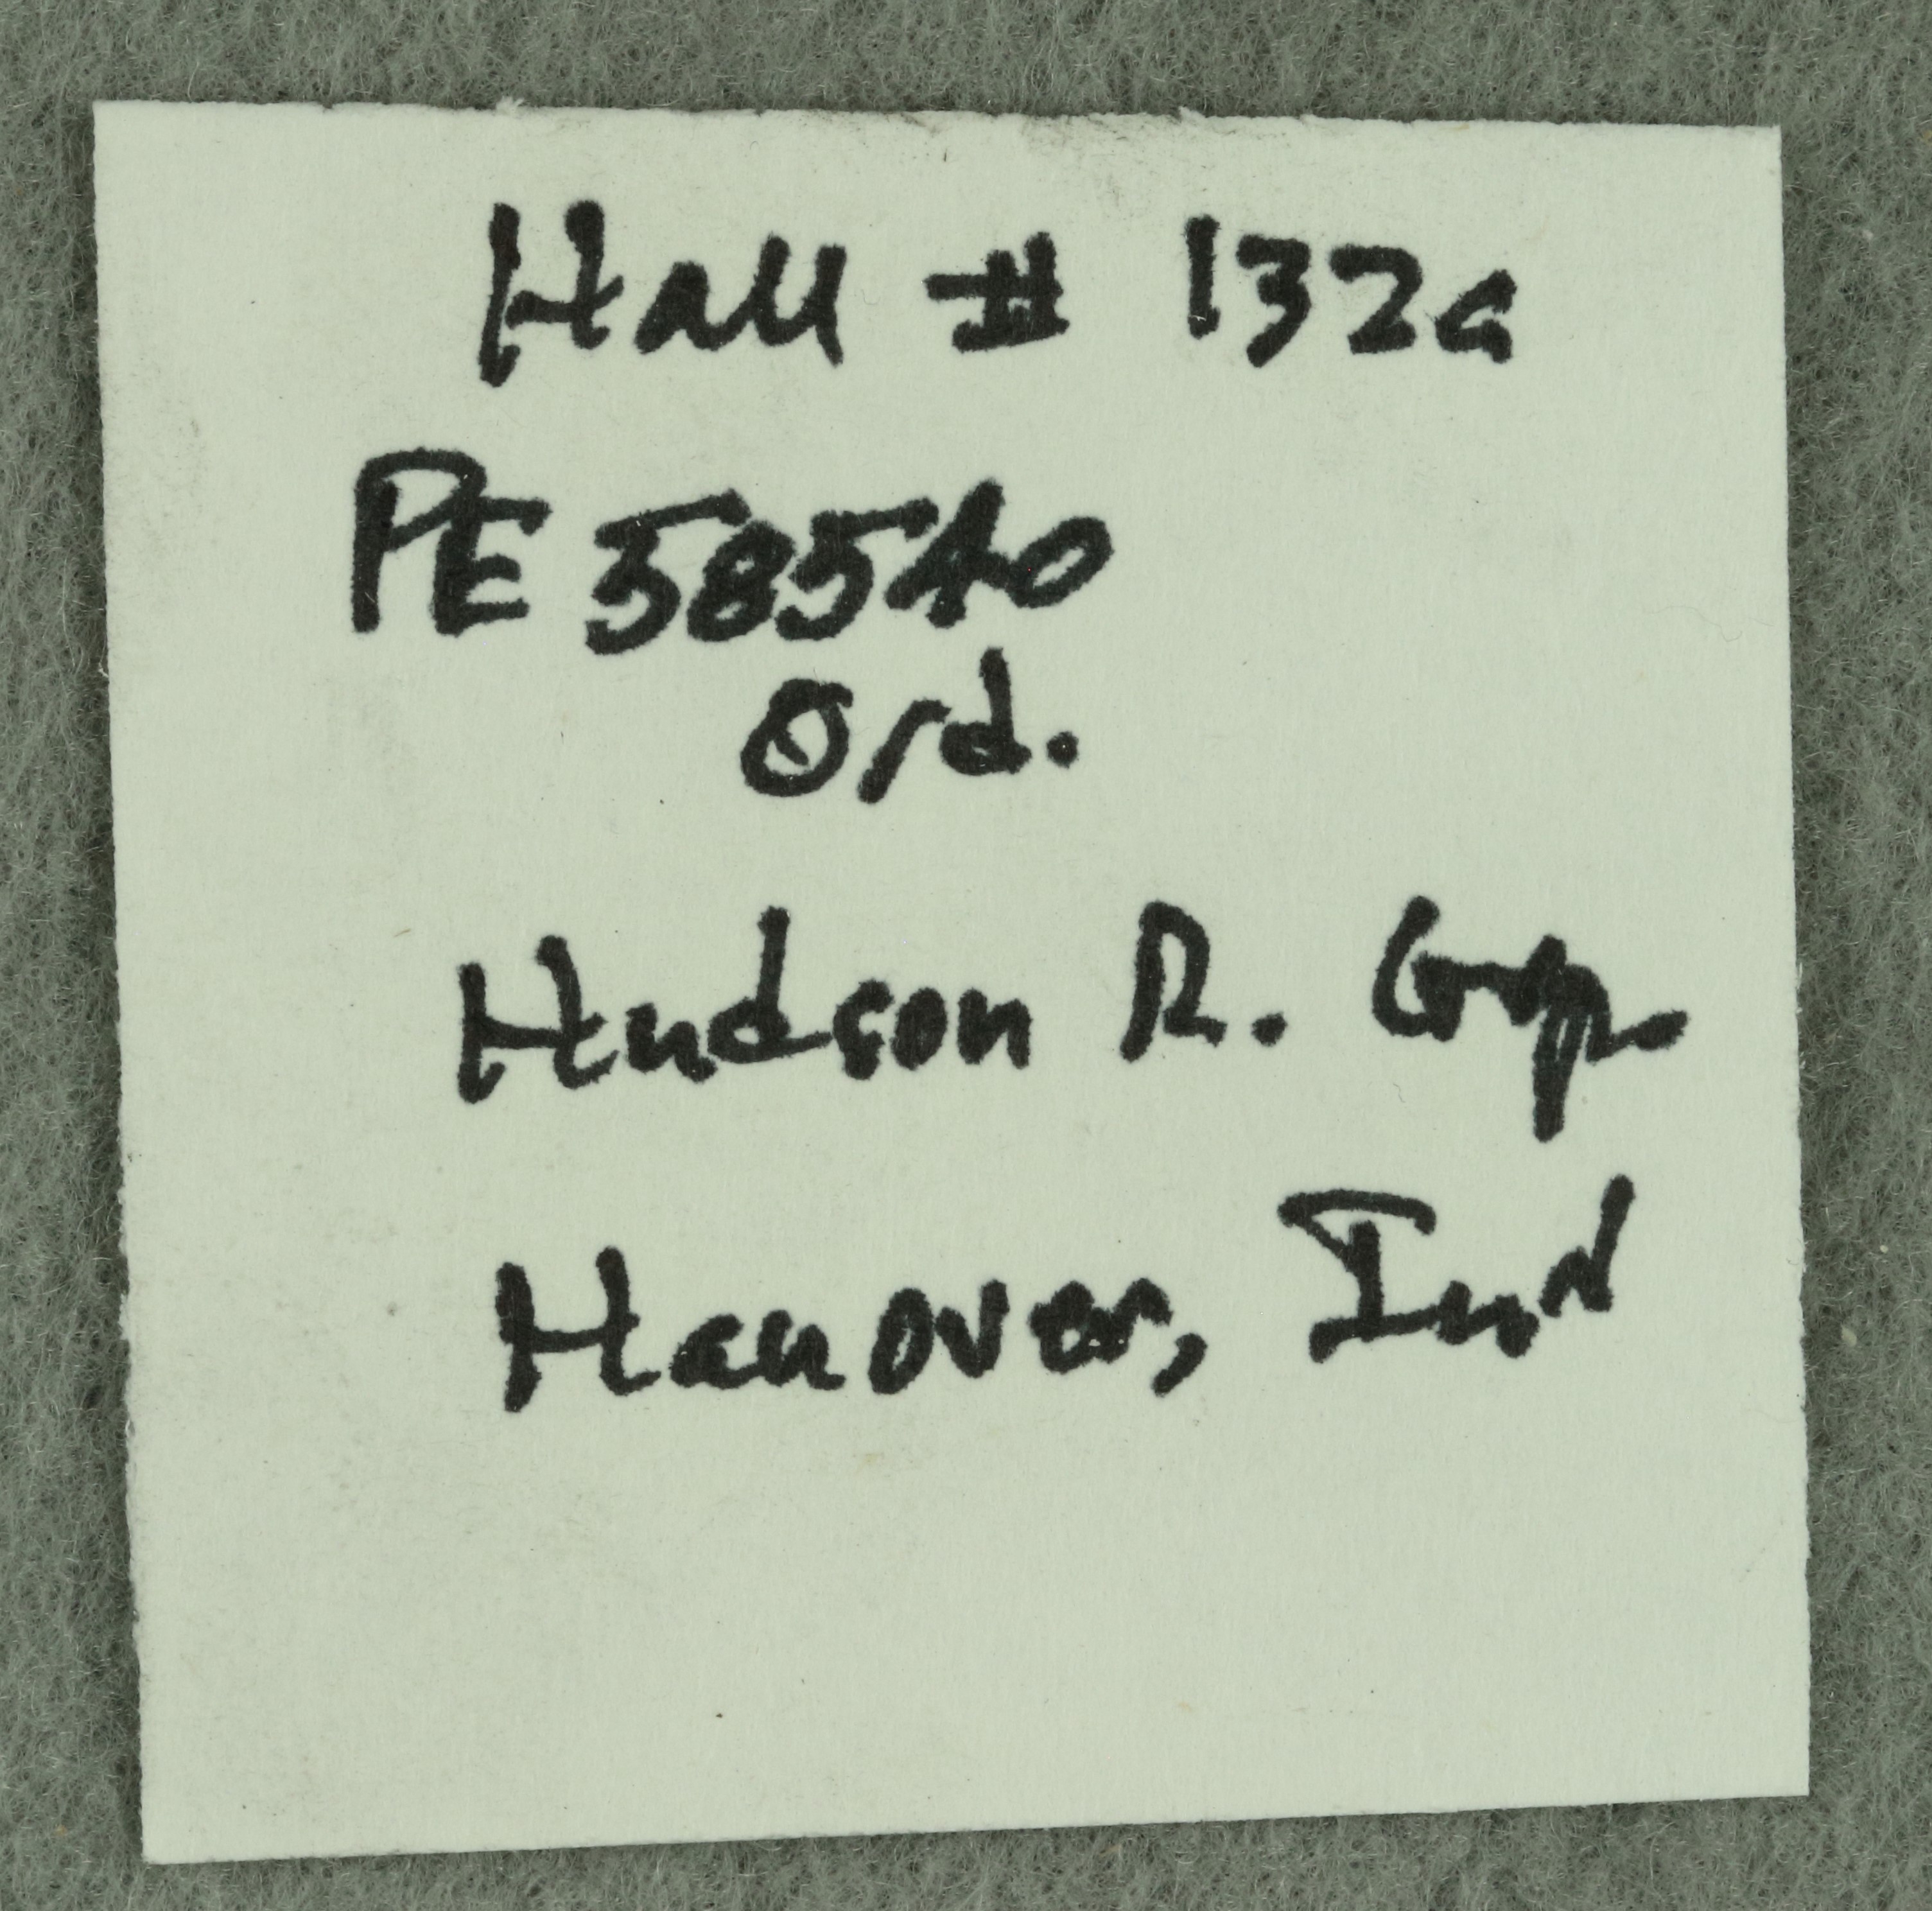 Hall # 132a
PE 58540
Ord.
Hudson R. Group.
Hanover, Ind